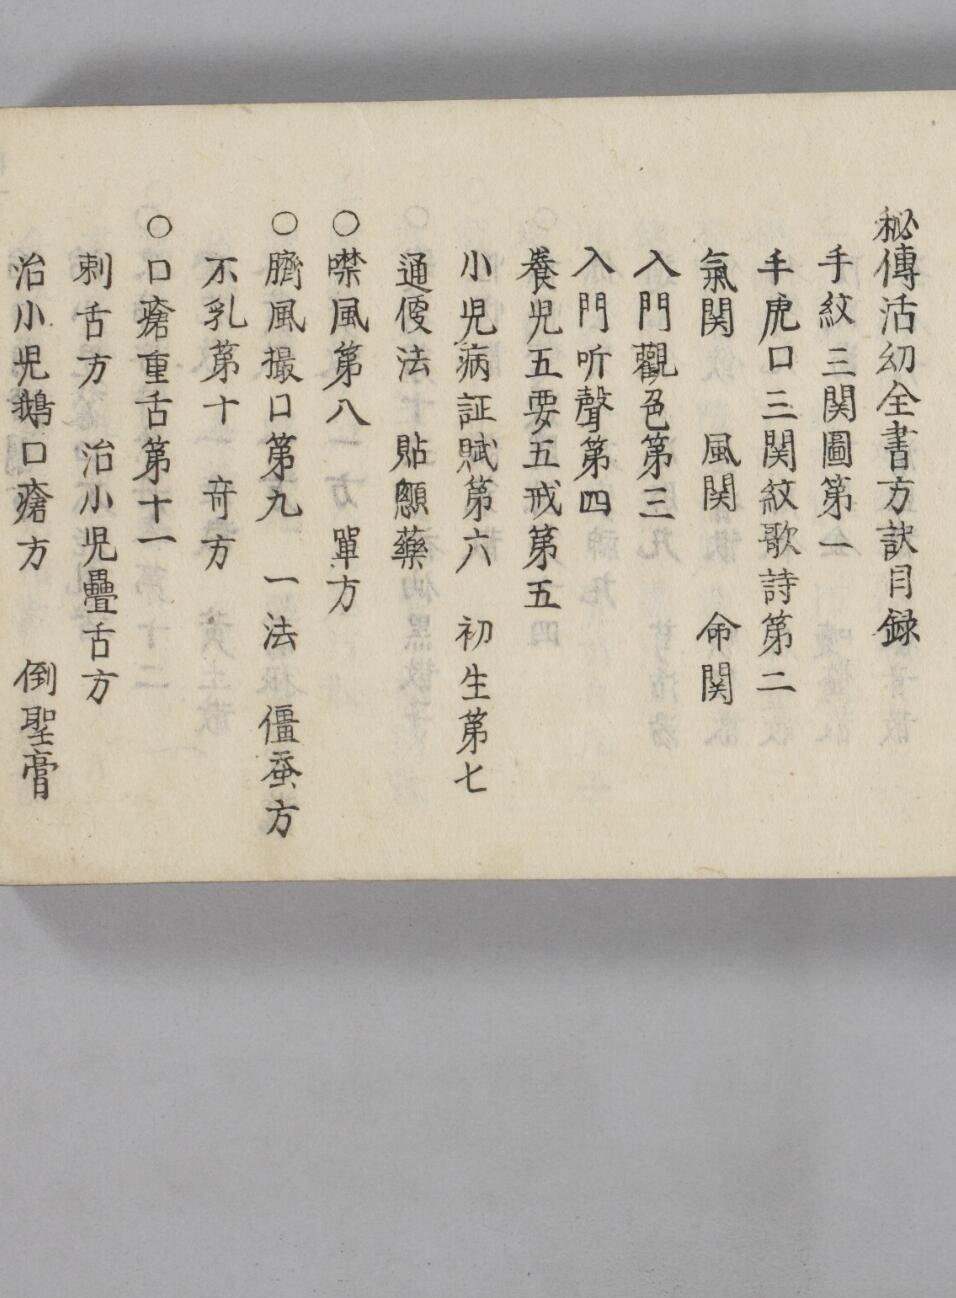 秘傳活幼全書方訣目録
手紋三関圖第一
手虎口三関紋歌詩第二
氣関 風関 命関
入門觀色第三
入門听聲第四
養児五要五戒第五
小児病証賦第六 初生第七
通便法 貼顖藥
○噤風第八 單方
○臍風撮口第九 一法 僵蚕方
不乳第十 竒方
○口瘡重舌第十一
刺舌方 治小児疊舌方
治小児鵝口瘡方 倒聖膏